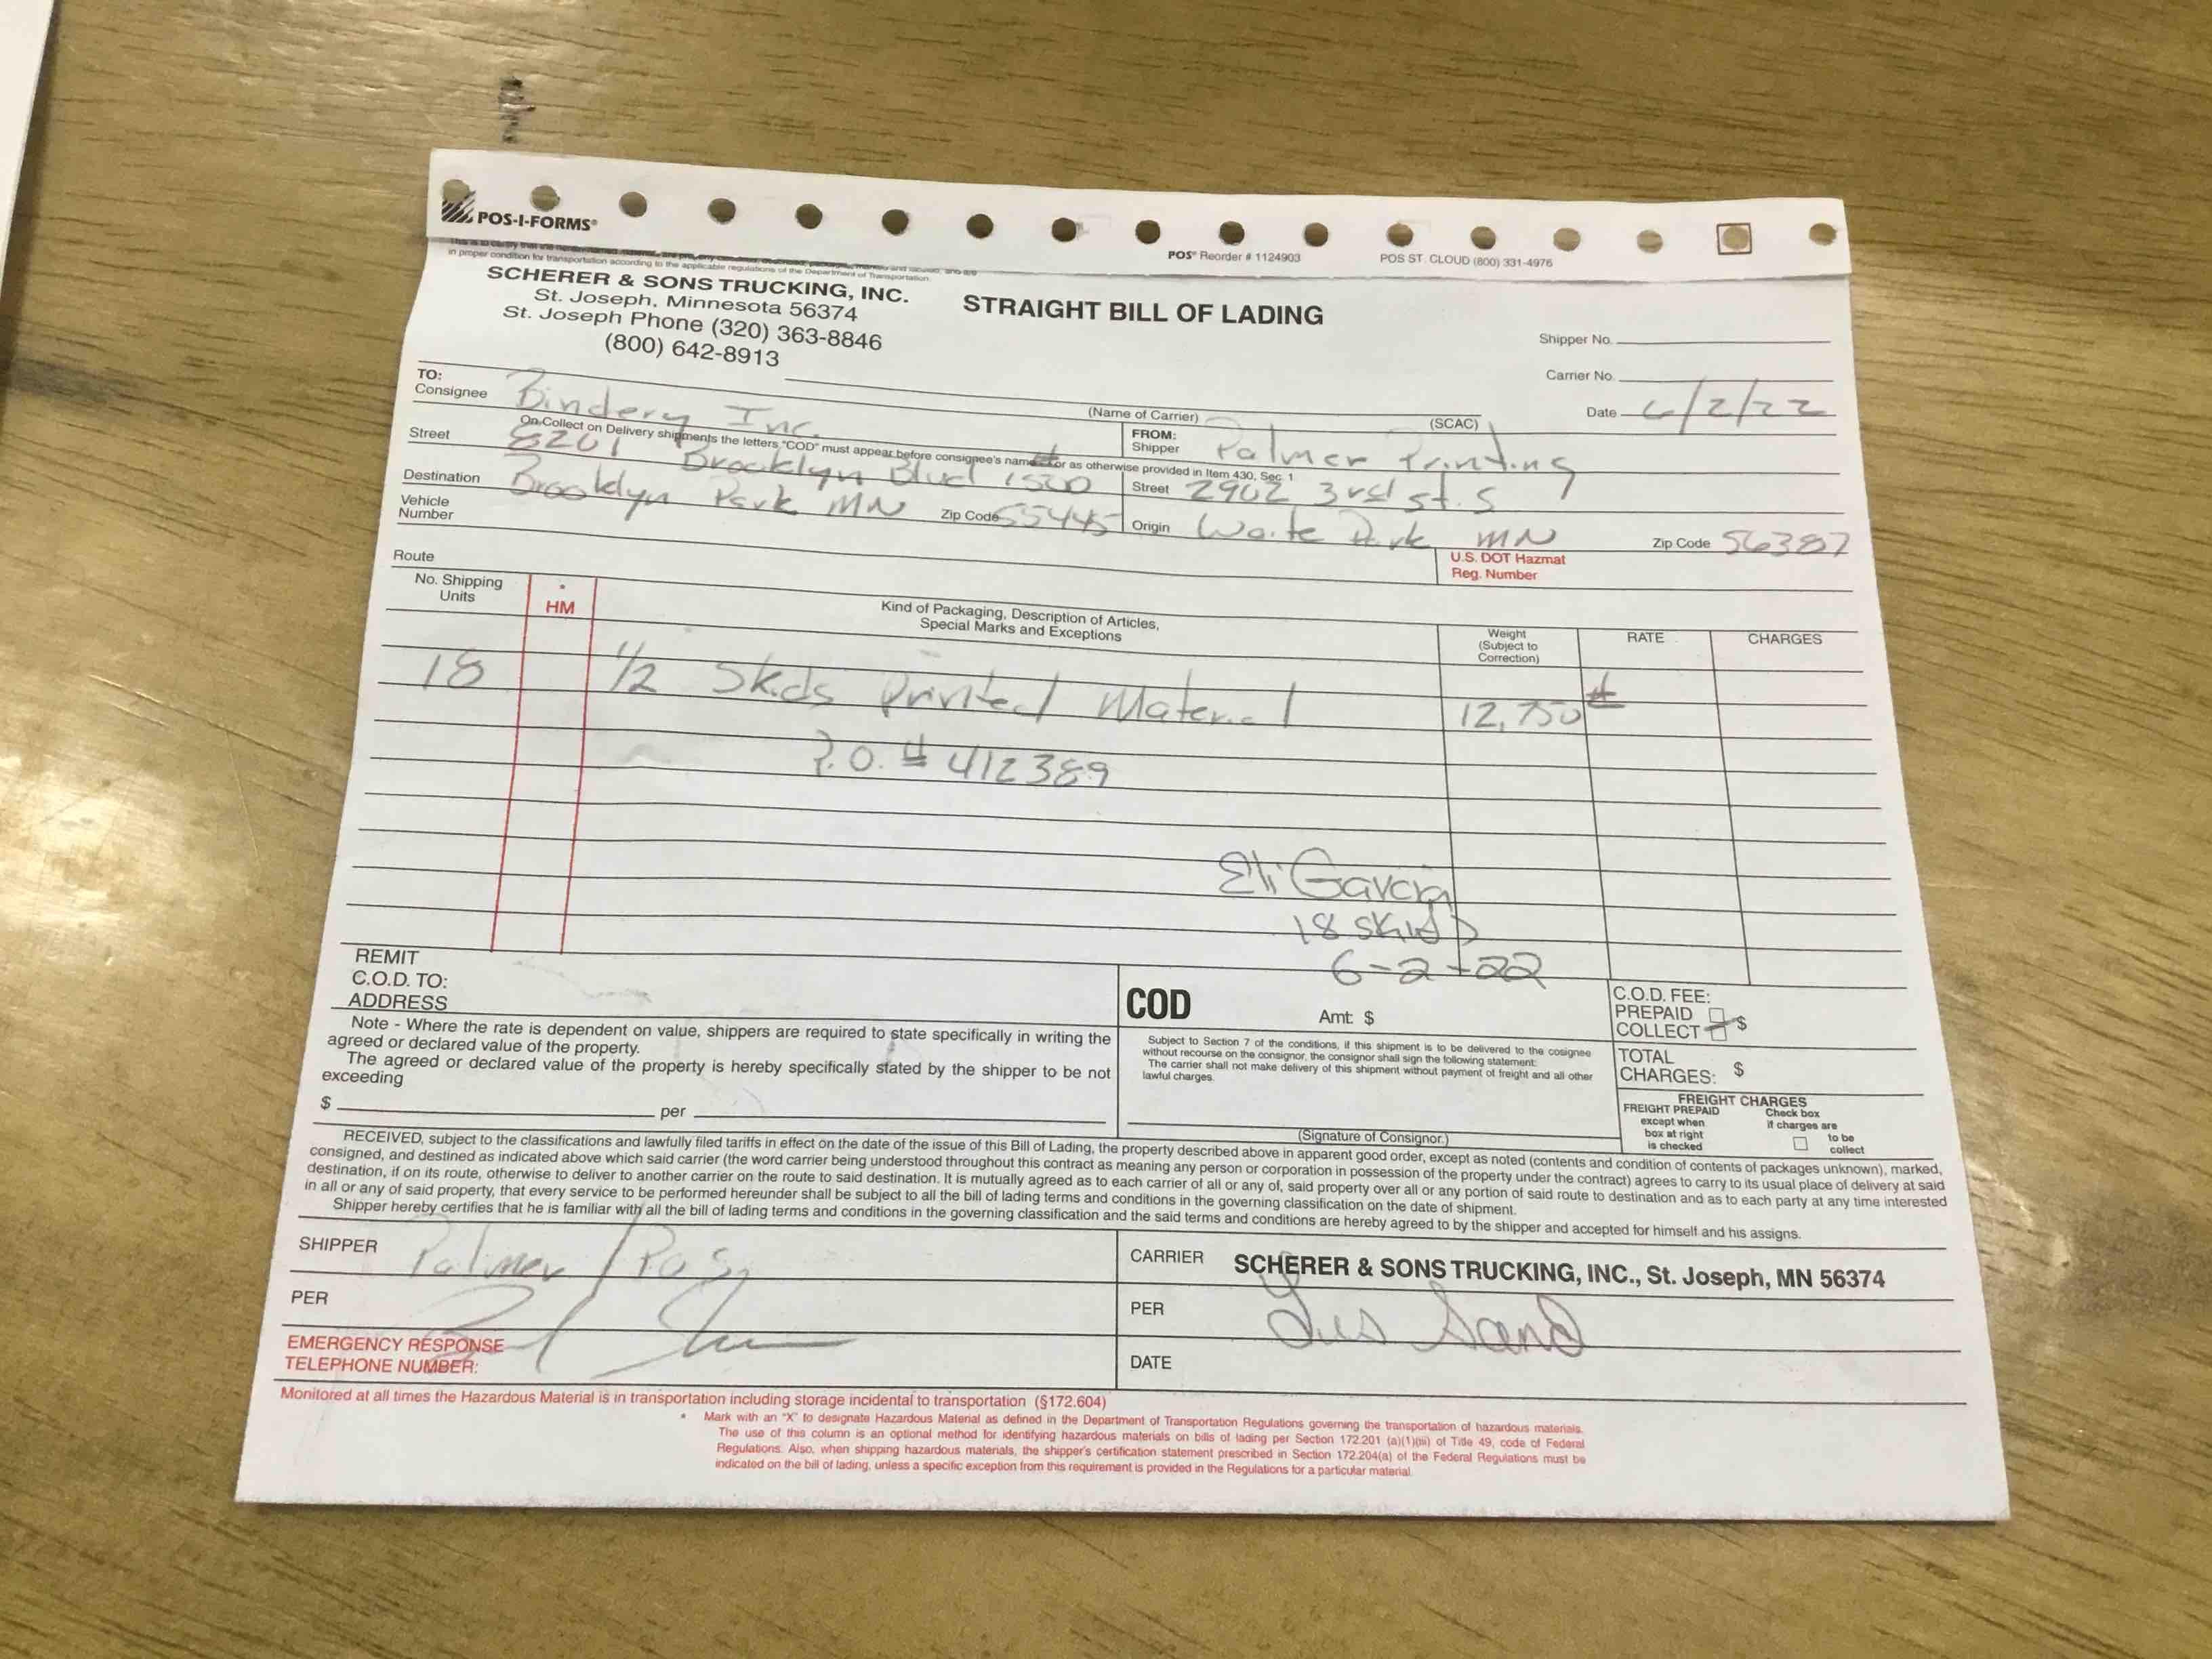 POS-I-FORMS®
POS® Reorder # 1124903
POS ST. CLOUD (800) 331-4976
in proper condition for transportation according to the applicable regulations of the Department of Transportation.
SCHERER & SONS TRUCKING, INC.
St. Joseph, Minnesota 56374
St. Joseph Phone (320) 363-8846
(800) 642-8913
STRAIGHT BILL OF LADING
Shipper No.
Carrier No.
Date 6/2/22
(Name of Carrier)
(SCAC)
TO:
Consignee Bindery Inc.
On Collect on Delivery shipments the letters "COD" must appear before consignee's name or as otherwise provided in Item 430, Sec. 1
Street 8201 Brooklyn Blvd
Destination Brooklyn Park MN Zip Code 55445
Vehicle
Number
FROM:
Shipper Palmer Printing
Street 2902 3rd st. S
Origin Waite Park MN Zip Code 56387
U.S. DOT Hazmat
Reg. Number
Route
No. Shipping
Units
*
HM
Kind of Packaging, Description of Articles,
Special Marks and Exceptions
Weight
(Subject to
Correction)
RATE
CHARGES
18 1/2 Skids Printed Material 12,750 #
P.O. # 412389
Eli Garcia
18 skids
6-2-22
REMIT
C.O.D. TO:
ADDRESS
COD
Amt: $
C.O.D. FEE:
PREPAID
COLLECT $
Note - Where the rate is dependent on value, shippers are required to state specifically in writing the
agreed or declared value of the property.
The agreed or declared value of the property is hereby specifically stated by the shipper to be not
exceeding
$ per
Subject to Section 7 of the conditions, if this shipment is to be delivered to the cosignee
without recourse on the consignor, the consignor shall sign the following statement:
The carrier shall not make delivery of this shipment without payment of freight and all other
lawful charges.
(Signature of Consignor.)
TOTAL
CHARGES: $
FREIGHT CHARGES
FREIGHT PREPAID
except when
box at right
is checked
Check box
if charges are
to be
collect
RECEIVED, subject to the classifications and lawfully filed tariffs in effect on the date of the issue of this Bill of Lading, the property described above in apparent good order, except as noted (contents and condition of contents of packages unknown), marked,
consigned, and destined as indicated above which said carrier (the word carrier being understood throughout this contract as meaning any person or corporation in possession of the property under the contract) agrees to carry to its usual place of delivery at said
destination, if on its route, otherwise to deliver to another carrier on the route to said destination. It is mutually agreed as to each carrier of all or any of, said property over all or any portion of said route to destination and as to each party at any time interested
in all or any of said property, that every service to be performed hereunder shall be subject to all the bill of lading terms and conditions in the governing classification on the date of shipment.
Shipper hereby certifies that he is familiar with all the bill of lading terms and conditions in the governing classification and the said terms and conditions are hereby agreed to by the shipper and accepted for himself and his assigns.
SHIPPER Palmer
PER
EMERGENCY RESPONSE
TELEPHONE NUMBER:
CARRIER SCHERER & SONS TRUCKING, INC., St. Joseph, MN 56374
PER Gus Sand
DATE
Monitored at all times the Hazardous Material is in transportation including storage incidental to transportation (§172.604)
* Mark with an "X" to designate Hazardous Material as defined in the Department of Transportation Regulations governing the transportation of hazardous materials.
The use of this column is an optional method for identifying hazardous materials on bills of lading per Section 172.201 (a)(1)(iii) of Title 49, code of Federal
Regulations. Also, when shipping hazardous materials, the shipper's certification statement prescribed in Section 172.204(a) of the Federal Regulations must be
indicated on the bill of lading, unless a specific exception from this requirement is provided in the Regulations for a particular material.